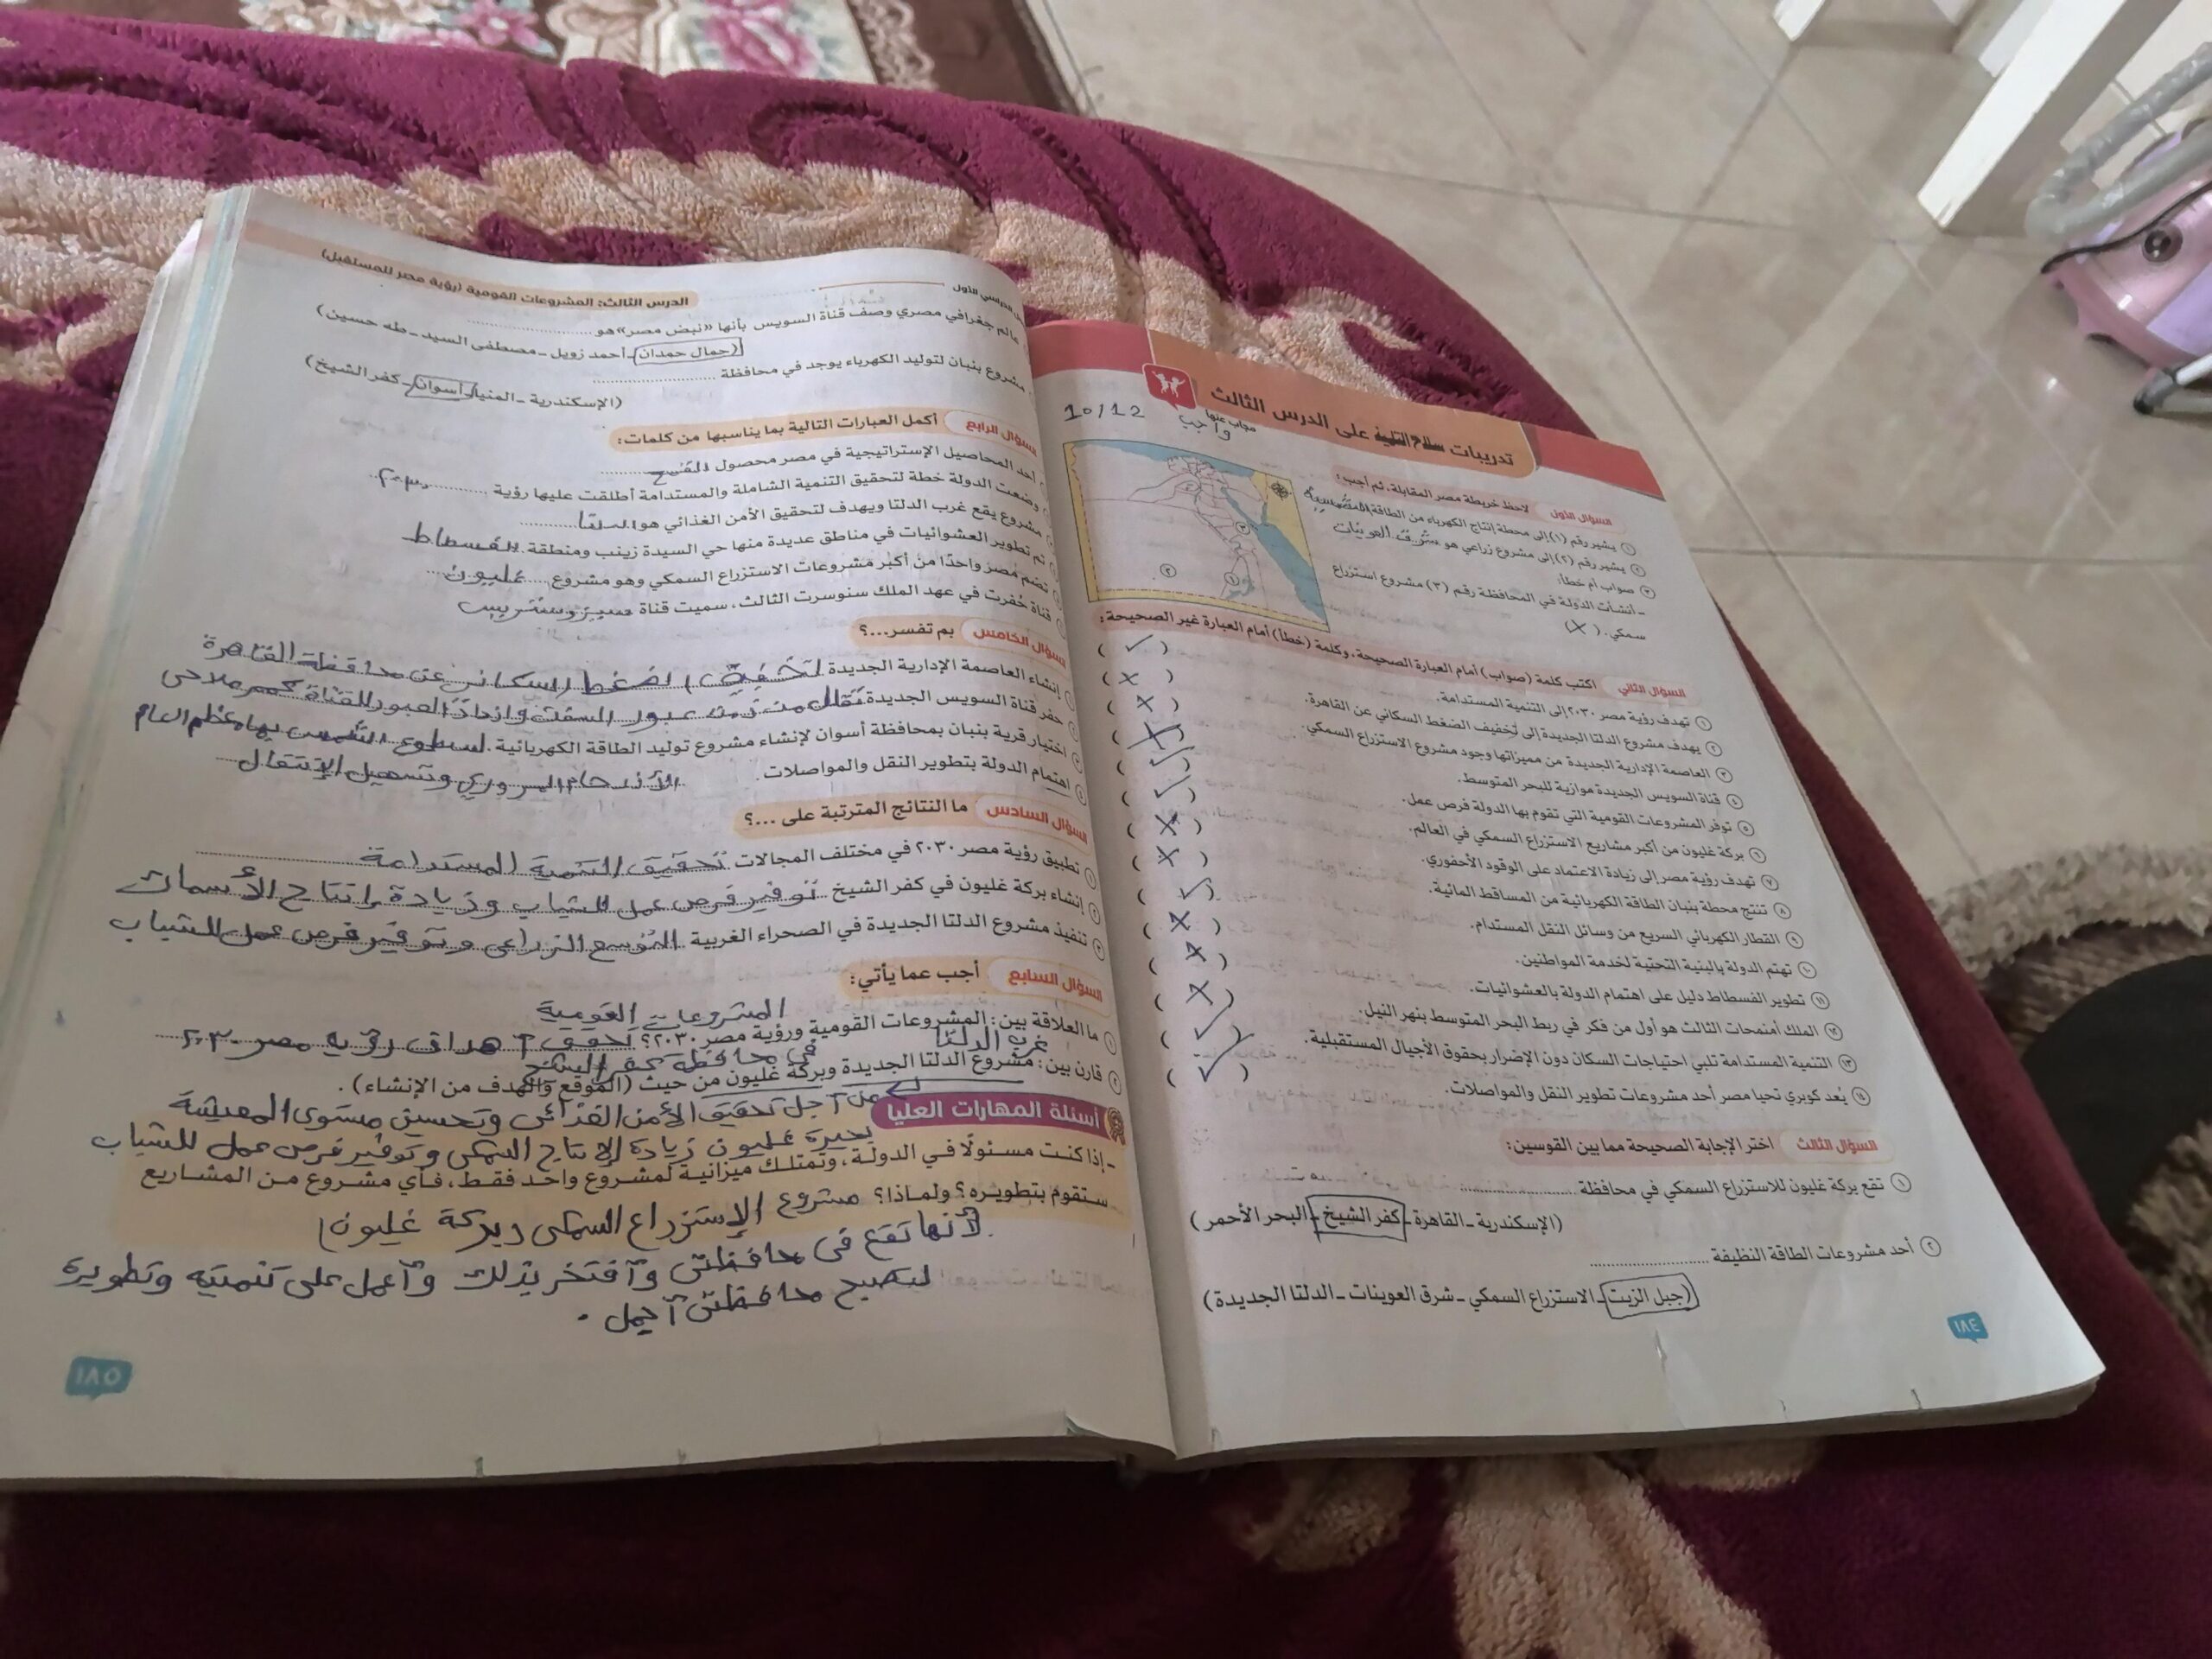 تدريبات سلاح التلميذ على الدرس الثالث
مجاب عنها
واجب
10/12
السؤال الأول لاحظ خريطة مصر المقابلة، ثم أجب:
١ يشير رقم (١) إلى محطة إنتاج الكهرباء من الطاقة الشمسية
٢ يشير رقم (٢) إلى مشروع زراعي هو شرق العوينات
٣ صواب أم خطأ:
- أنشأت الدولة في المحافظة رقم (٣) مشروع استزراع
سمكي. (X)
السؤال الثاني اكتب كلمة (صواب) أمام العبارة الصحيحة، وكلمة (خطأ) أمام العبارة غير الصحيحة:
١ تهدف رؤية مصر ٢٠٣٠ إلى التنمية المستدامة. (✓)
٢ يهدف مشروع الدلتا الجديدة إلى تخفيف الضغط السكاني عن القاهرة. (X)
٣ العاصمة الإدارية الجديدة من مميزاتها وجود مشروع الاستزراع السمكي. (X)
٤ قناة السويس الجديدة موازية للبحر المتوسط. (X)
٥ توفر المشروعات القومية التي تقوم بها الدولة فرص عمل. (✓)
٦ بركة غليون من أكبر مشاريع الاستزراع السمكي في العالم. (✓)
٧ تهدف رؤية مصر إلى زيادة الاعتماد على الوقود الأحفوري. (X)
٨ تنتج محطة بنبان الطاقة الكهربائية من المساقط المائية. (X)
٩ القطار الكهربائي السريع من وسائل النقل المستدام. (✓)
١٠ تهتم الدولة بالبنية التحتية لخدمة المواطنين. (X)
١١ تطوير الفسطاط دليل على اهتمام الدولة بالعشوائيات. (X)
١٢ الملك أمنمحات الثالث هو أول من فكر في ربط البحر المتوسط بنهر النيل. (X)
١٣ التنمية المستدامة تلبي احتياجات السكان دون الإضرار بحقوق الأجيال المستقبلية. (✓)
١٤ يُعد كوبري تحيا مصر أحد مشروعات تطوير النقل والمواصلات. (✓)
السؤال الثالث اختر الإجابة الصحيحة مما بين القوسين:
١ تقع بركة غليون للاستزراع السمكي في محافظة
(الإسكندرية - القاهرة - كفر الشيخ - البحر الأحمر)
٢ أحد مشروعات الطاقة النظيفة
(جبل الزيت - الاستزراع السمكي - شرق العوينات - الدلتا الجديدة)
١٨٤
الدرس الثالث: المشروعات القومية (رؤية مصر للمستقبل)
عالم جغرافي مصري وصف قناة السويس بأنها «نبض مصر» هو
(جمال حمدان - أحمد زويل - مصطفى السيد - طه حسين)
مشروع بنبان لتوليد الكهرباء يوجد في محافظة
(الإسكندرية - المنيا - أسوان - كفر الشيخ)
السؤال الرابع أكمل العبارات التالية بما يناسبها من كلمات:
أحد المحاصيل الإستراتيجية في مصر محصول القمح
وضعت الدولة خطة لتحقيق التنمية الشاملة والمستدامة أطلقت عليها رؤية ٢٠٣٠
مشروع يقع غرب الدلتا ويهدف لتحقيق الأمن الغذائي هو الدلتا
تم تطوير العشوائيات في مناطق عديدة منها حي السيدة زينب ومنطقة الفسطاط
تضم مصر واحدًا من أكبر مشروعات الاستزراع السمكي وهو مشروع غليون
قناة حُفرت في عهد الملك سنوسرت الثالث، سميت قناة سيزوستريس
السؤال الخامس بم تفسر...؟
١ إنشاء العاصمة الإدارية الجديدة لتخفيض الضغط السكاني عن محافظة القاهرة
٢ حفر قناة السويس الجديدة تقلل من زمن عبور السفن وازدادَ العبور للقناة كممر ملاحى
٣ اختيار قرية بنبان بمحافظة أسوان لإنشاء مشروع توليد الطاقة الكهربائية. لسطوع الشمس بها معظم العام
٤ اهتمام الدولة بتطوير النقل والمواصلات. الأزدحام المروري وتسهيل الإنتقال
السؤال السادس ما النتائج المترتبة على ...؟
١ تطبيق رؤية مصر ٢٠٣٠ في مختلف المجالات تحقيق التنمية المستدامة
٢ إنشاء بركة غليون في كفر الشيخ توفير فرص عمل للشباب وزيادة إنتاج الأسماك
٣ تنفيذ مشروع الدلتا الجديدة في الصحراء الغربية التوسع الزراعى وتوفير فرص عمل للشباب
السؤال السابع أجب عما يأتي:
المشروعات القومية
١ ما العلاقة بين: المشروعات القومية ورؤية مصر ٢٠٣٠؟ تحقق أهداف رؤية مصر ٢٠٣٠
غرب الدلتا
فى محافظة كفر الشيخ
٢ قارن بين: مشروع الدلتا الجديدة وبركة غليون من حيث (الموقع والهدف من الإنشاء).
من أجل تحقيق الأمن الغذائى وتحسين مستوى المعيشة
أسئلة المهارات العليا
بحيرة غليون زيادة الإنتاج السمكى وتوفير فرص عمل للشباب
- إذا كنت مسئولًا في الدولة، وتمتلك ميزانية لمشروع واحد فقط، فأي مشروع من المشاريع
ستقوم بتطويره؟ ولماذا؟ مشروع الإستزراع السمكى (بركة غليون)
لأنها تقع فى محافظتى وأفتخر بذلك وأعمل على تنميته وتطويره
لتصبح محافظتى أجمل.
١٨٥